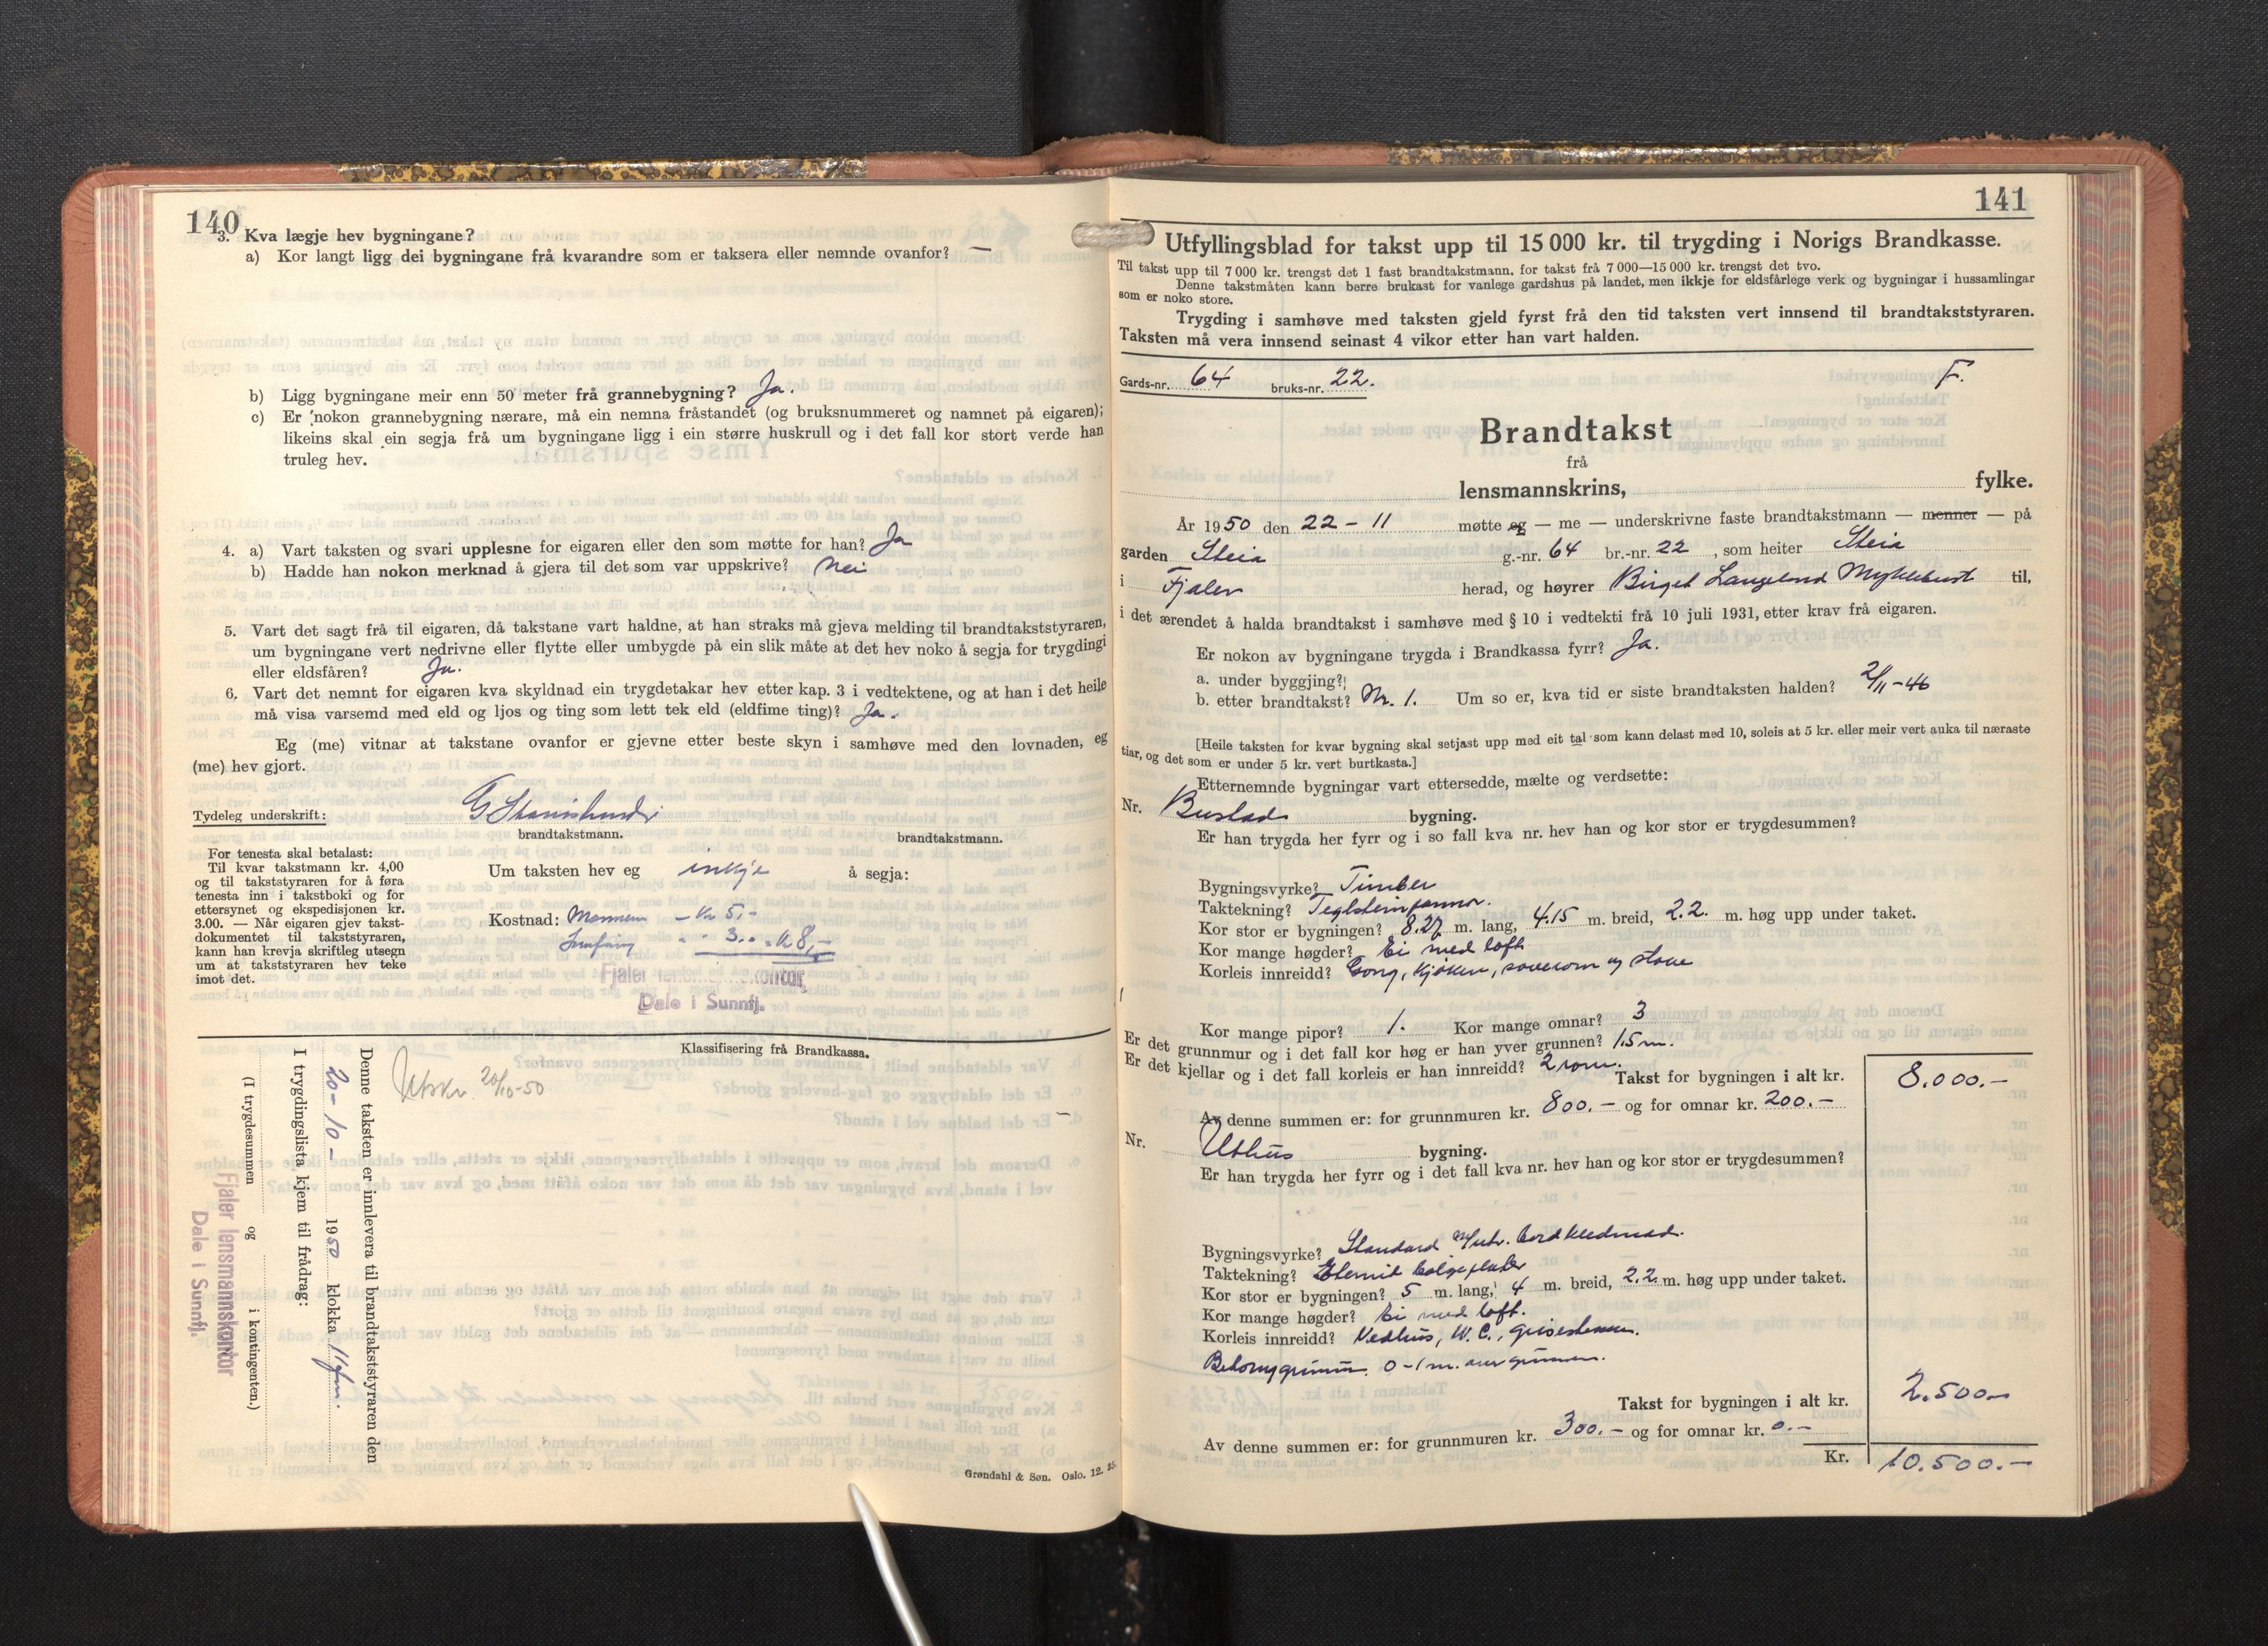 140
3. Kva lægje hev bygningane?
a) Kor langt ligg dei bygningane frå kvarandre som er taksera eller nemnde ovanfor? —
b) Ligg bygningane meir enn 50 meter frå grannebygning? Ja.
c) Er nokon grannebygning nærare, må ein nemna fråstandet (og bruksnummeret og namnet på eigaren);
likeins skal ein segja frå um bygningane ligg i ein større huskrull og i det fall kor stort verde han
truleg hev.
4. a) Vart taksten og svari upplesne for eigaren eller den som møtte for han? Ja
b) Hadde han nokon merknad å gjera til det som var uppskrive? Nei
5. Vart det sagt frå til eigaren, då takstane vart haldne, at han straks må gjeva melding til brandtakststyraren,
um bygningane vert nedrivne eller flytte eller umbygde på ein slik måte at det hev noko å segja for trygdingi
eller eldsfåren? Ja.
6. Vart det nemnt for eigaren kva skyldnad ein trygdetakar hev etter kap. 3 i vedtektene, og at han i det heile
må visa varsemd med eld og ljos og ting som lett tek eld (eldfime ting)? Ja.
Eg (me) vitnar at takstane ovanfor er gjevne etter beste skyn i samhøve med den lovnaden, eg
(me) hev gjort.
Tydeleg underskrift:
brandtakstmann. brandtakstmann.
For tenesta skal betalast:
Til kvar takstmann kr. 4,00
og til takststyraren for å føra
tenesta inn i takstboki og for
ettersynet og ekspedisjonen kr.
3.00. — Når eigaren gjev takst-
dokumentet til takststyraren,
kann han krevja skriftleg utsegn
um at takststyraren hev teke
imot det.
Um taksten hev eg inkje å segja:
Kostnad: Mannen – kr 5,-
3.- = kr 8,-
Fjaler lensmannskontor
Dale i Sunnfj.
Klassifisering frå Brandkassa.
Utskr. 20/10-50
Denne taksten er innlevera til brandtakststyraren den
20-10- 1950 klokka 11 fm.
I trygdingslista kjem til frådrag:
(I trygdesummen og i kontingenten.)
Fjaler lensmannskontor
Dale i Sunnfj.
Grøndahl & Søn. Oslo. 12. 35.
141
Utfyllingsblad for takst upp til 15 000 kr. til trygding i Norigs Brandkasse.
Til takst upp til 7 000 kr. trengst det 1 fast brandtakstmann, for takst frå 7 000—15 000 kr. trengst det tvo.
Denne takstmåten kann berre brukast for vanlege gardshus på landet, men ikkje for eldsfårlege verk og bygningar i hussamlingar
som er noko store.
Trygding i samhøve med taksten gjeld fyrst frå den tid taksten vert innsend til brandtakststyraren.
Taksten må vera innsend seinast 4 vikor etter han vart halden.
Gards-nr. 64 bruks-nr. 22. F.
Brandtakst
frå
lensmannskrins, fylke.
År 1950 den 22 – 11 møtte eg — me — underskrivne faste brandtakstmann — menner — på
garden Steia g.-nr. 64 br.-nr. 22 , som heiter Steia
i Fjaler herad, og høyrer Birget Langeland Myklebust til,
i det ærendet å halda brandtakst i samhøve med § 10 i vedtekti frå 10 juli 1931, etter krav frå eigaren.
Er nokon av bygningane trygda i Brandkassa fyrr? Ja.
a. under byggjing?
b. etter brandtakst? Nr. 1. Um so er, kva tid er siste brandtaksten halden? 2/11-46
[Heile taksten for kvar bygning skal setjast upp med eit tal som kann delast med 10, soleis at 5 kr. eller meir vert auka til næraste
tiar, og det som er under 5 kr. vert burtkasta.]
Etternemnde bygningar vart ettersedde, mælte og verdsette:
Nr. Bustad bygning.
Er han trygda her fyrr og i so fall kva nr. hev han og kor stor er trygdesummen?
Bygningsvyrke? Timber
Taktekning? Teglsteinpannor.
Kor stor er bygningen? 8.27 m. lang, 4.15 m. breid, 2.2. m. høg upp under taket.
Kor mange høgder? Ei med loft
Korleis innreidd? Gong, kjøken, soverom og stove
Kor mange pipor? 1. Kor mange omnar? 3
Er det grunnmur og i det fall kor høg er han yver grunnen? 1.5 m.
Er det kjellar og i det fall korleis er han innreidd? 2 rom.
Takst for bygningen i alt kr. 8.000.-
Av denne summen er: for grunnmuren kr. 800.- og for omnar kr. 200.-
Nr. Uthus bygning.
Er han trygda her fyrr og i det fall kva nr. hev han og kor stor er trygdesummen?
Bygningsvyrke? Standard m/utv. bordklednad.
Taktekning? Eternit bølgeplater
Kor stor er bygningen? 5 m. lang, 4 m. breid, 2.2 m. høg upp under taket.
Kor mange høgder? Ei med loft.
Korleis innreidd? Vedhus, W.C.,
0-1 m. over grunnen.
Takst for bygningen i alt kr. 2.500.-
Av denne summen er: for grunnmuren kr. 300.- og for omnar kr. 0.-
Kr. 10.500.-